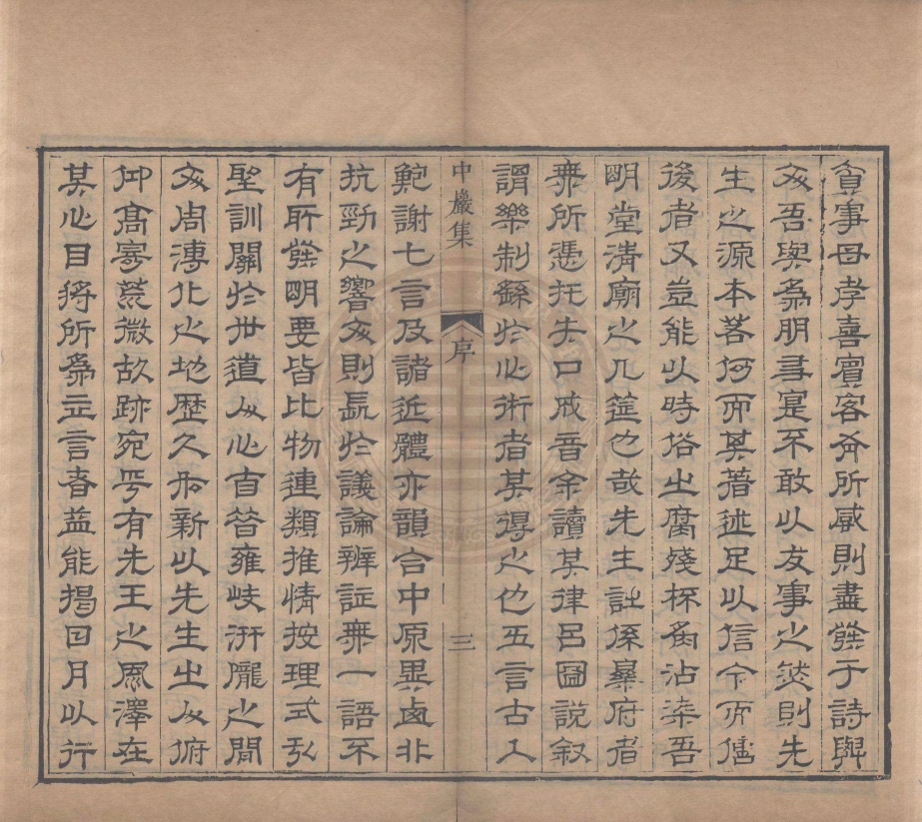 貧事母孝喜賓客有所感則盡發于詩與
文吾與為朋寻寔不敢以友事之然則先
生之源本若何而其著述足以信今而傳
後者又豈能以時俗之腐殘杯炙沾染吾
明堂清廟之几筵也哉先生註係樂府者
無所憑托失口成音余讀其律呂圖說叙
謂樂制繇於心術者其得之也五言古入
中巖集 序 三
鮑謝七言及諸近體亦韻合中原異鹵非
抗勁之響文則長於議論辨証無一語不
有所發明要皆比物連類推情按理式弘
聖訓關於世道人心百昔雍岐汧隴之間
文周漙化之地歷久而新以先生之人俯
仰高寒荒微故跡宛乎有先王之恩澤在
其心目將所為立言者蓋能揭日月以行